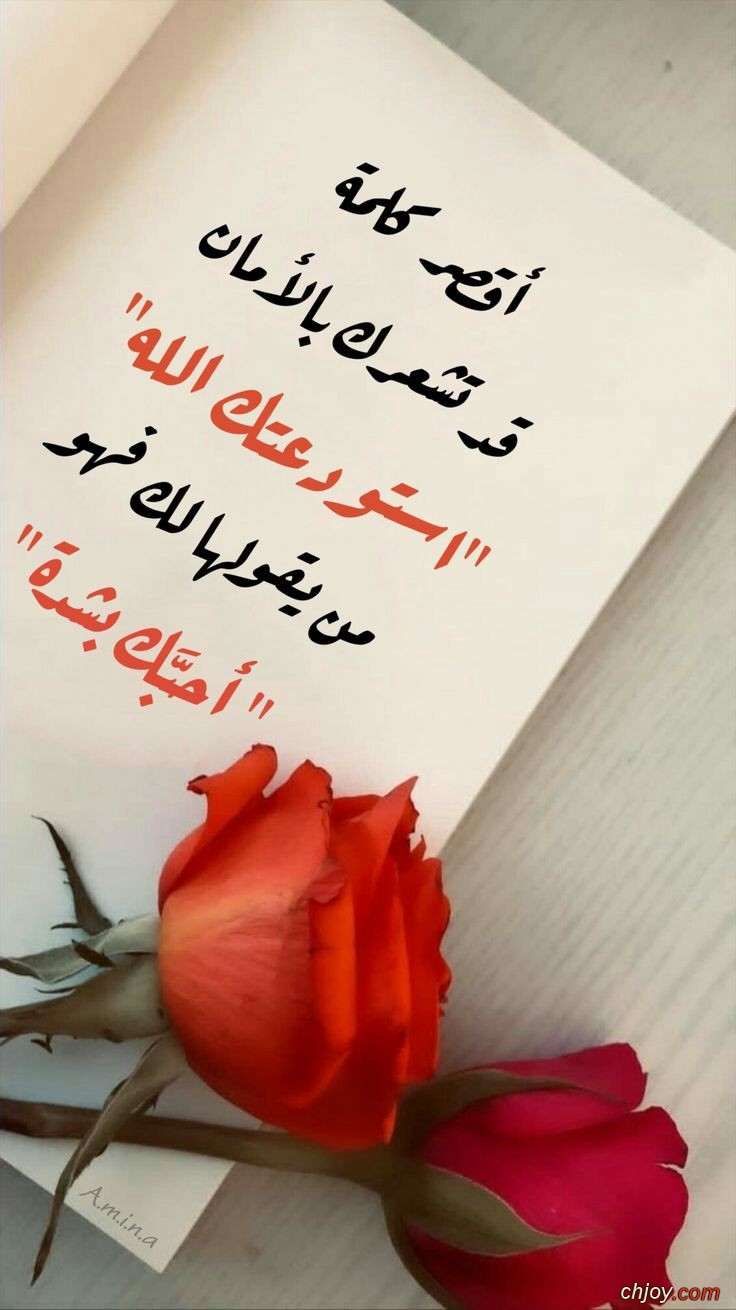 أقصر كلمة
قد تشعرك بالأمان
"استودعتك الله"
من يقولها لك فهو
"أحبَّك بشدة"
A.m.i.n.a
chjoy.com